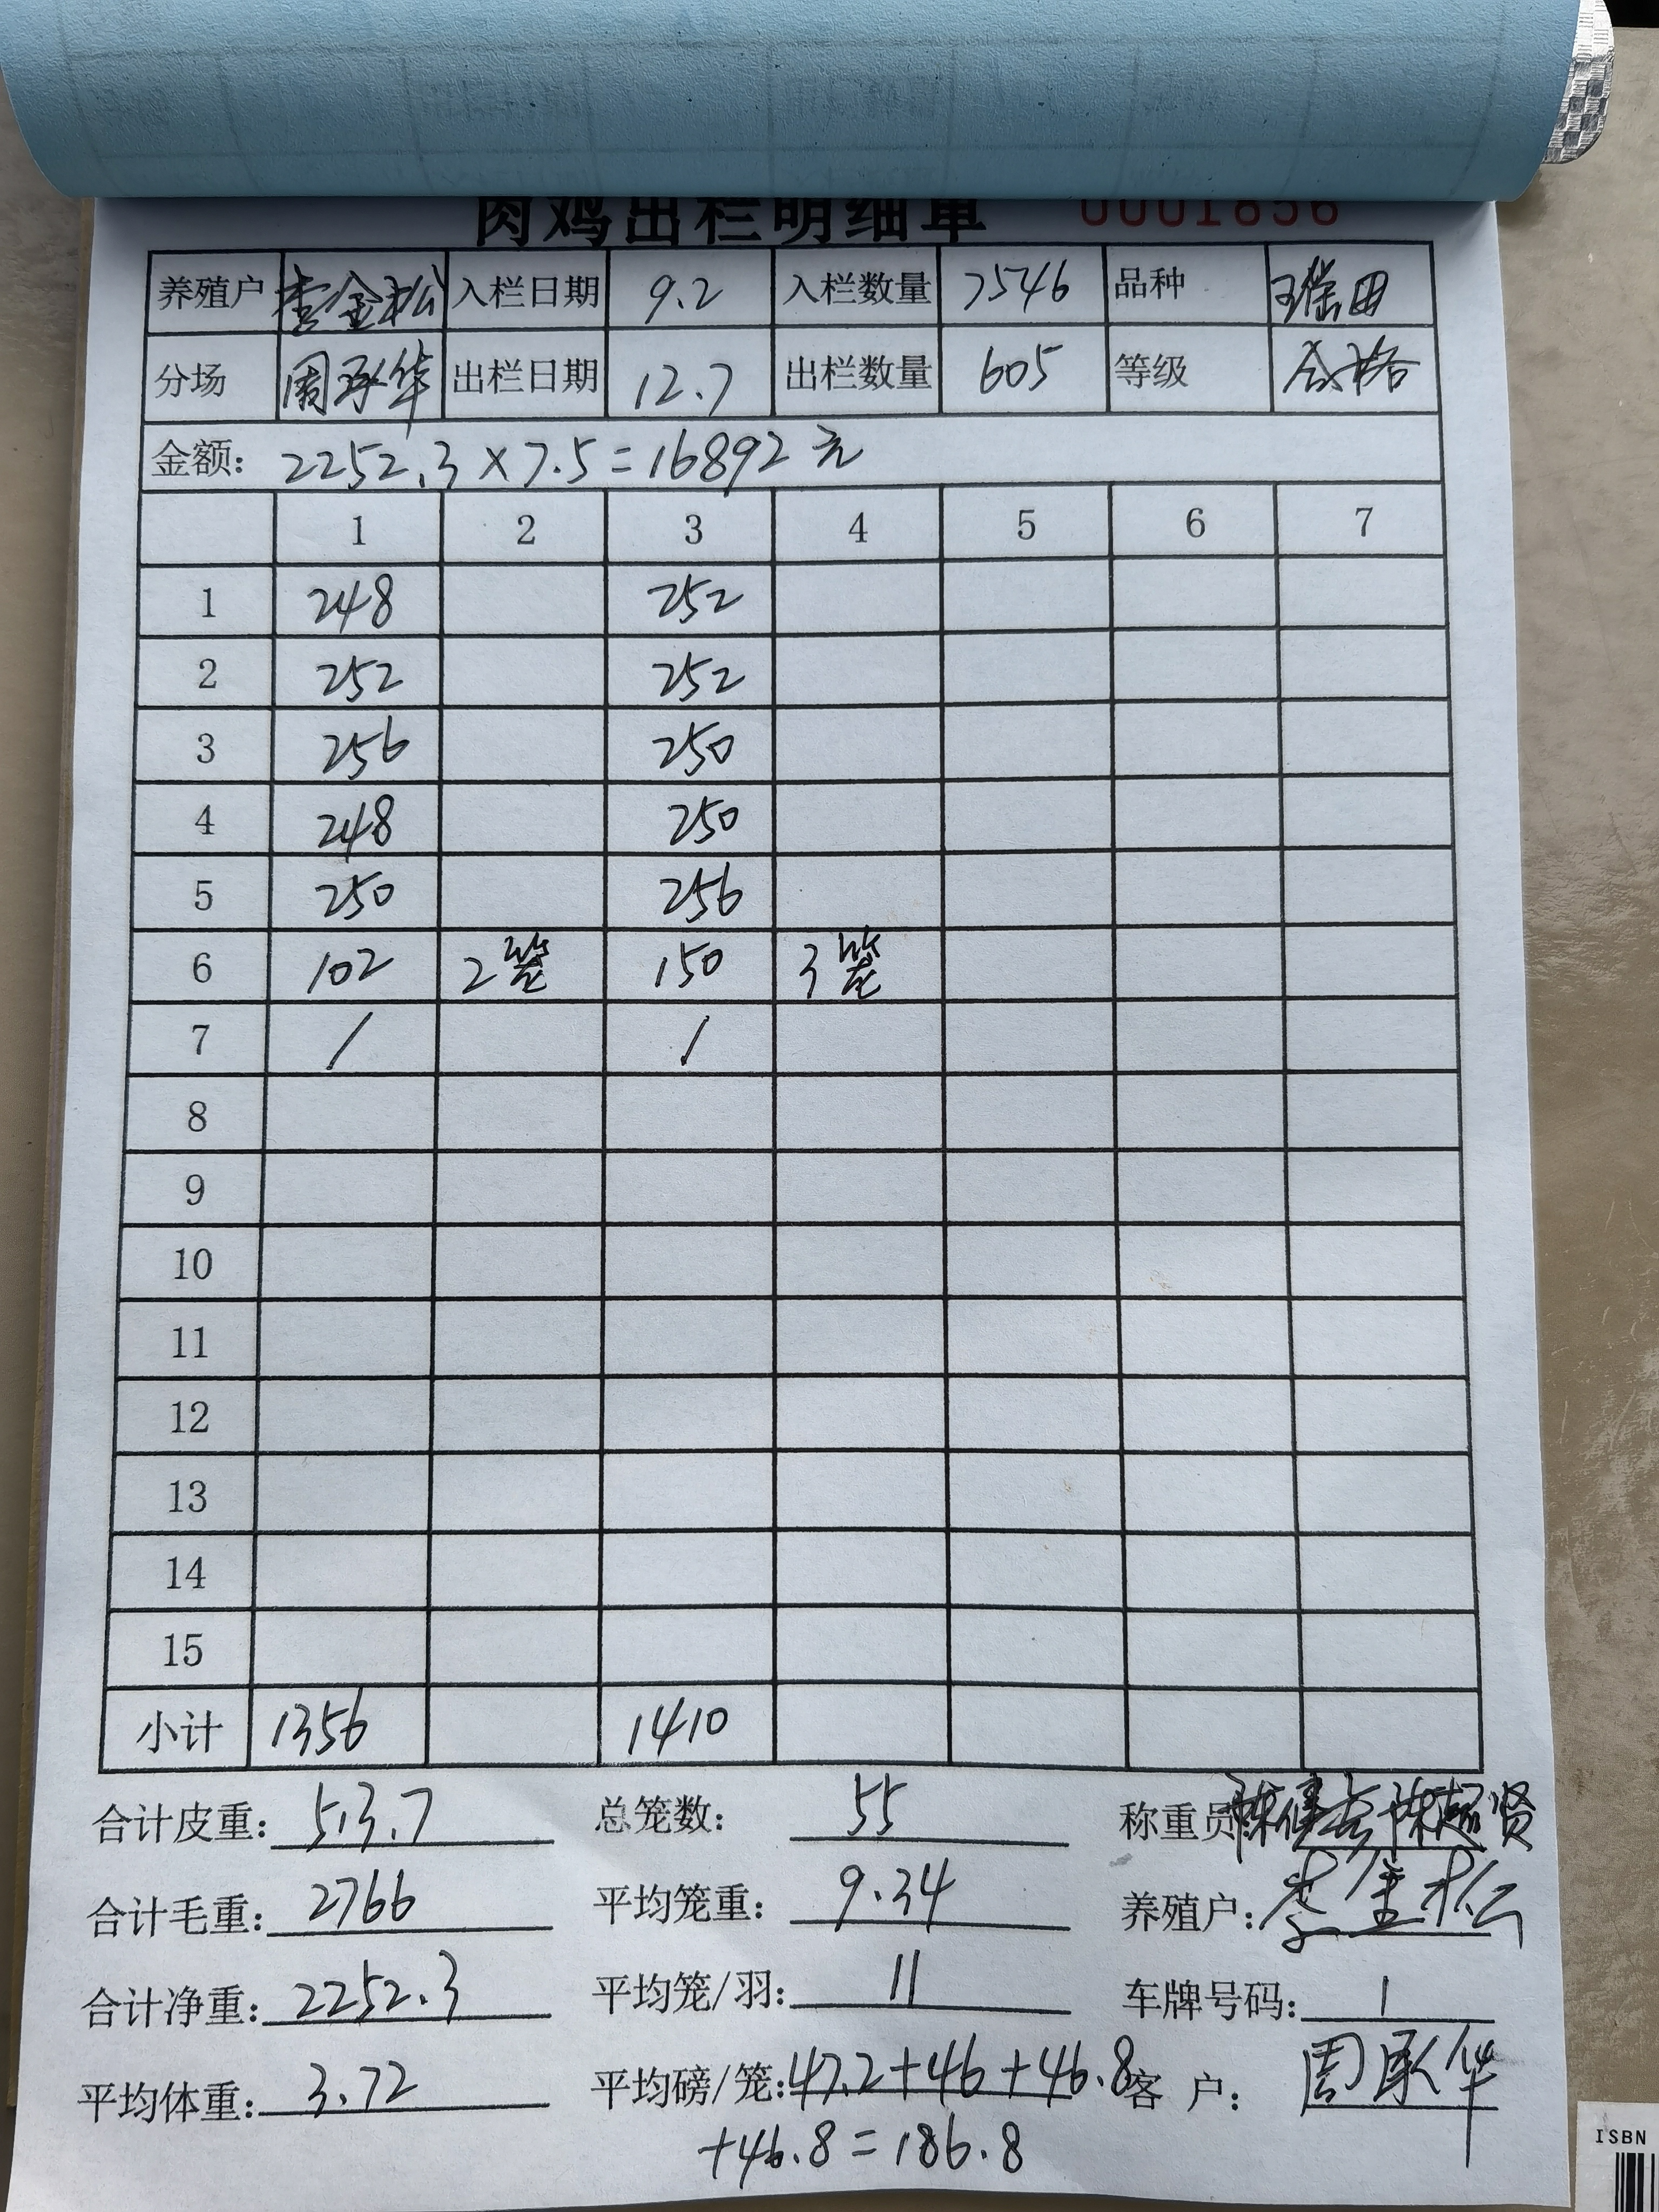 肉鸡出栏明细单 0001856
养殖户 李金松 入栏日期 9.2 入栏数量 7546 品种
分场 周承华 出栏日期 12.7 出栏数量 605 等级 合格
金额: 2252.3×7.5=16892元
1 2 3 4 5 6 7
1 248 252
2 252 252
3 256 250
4 248 250
5 250 256
6 102 2笼 150 3笼
7 / /
8
9
10
11
12
13
14
15
小计 1356 1410
合计皮重: 513.7 总笼数: 55 称重员
合计毛重: 2766 平均笼重: 9.34 养殖户: 李金松
合计净重: 2252.3 平均笼/羽: 11 车牌号码: 1
平均体重: 3.72 平均磅/笼: 47.2+46+46.8 客 户: 周承华
+46.8=186.8
ISBN